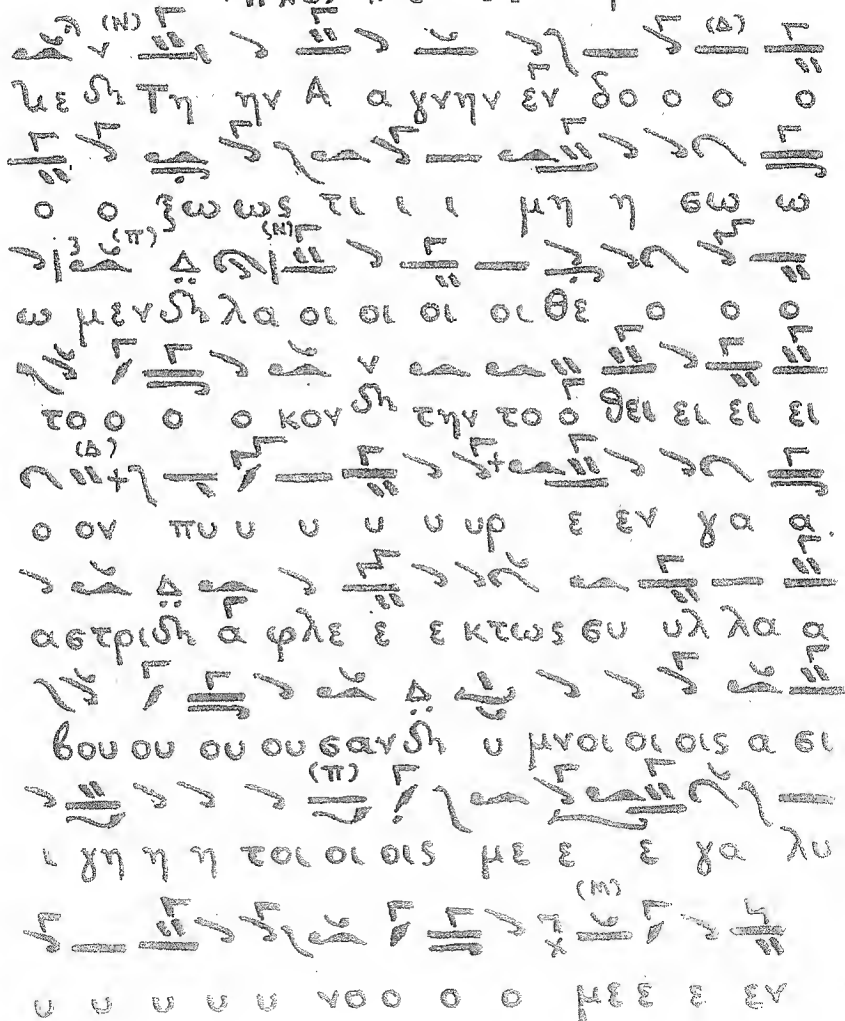 (Ν) (Δ)
Τη ην Α α γνην εν δο ο ο ο
ο ο ξω ως τι ι ι μη η σω ω
(Π) Δ (Ν)
ω μεν λα οι οι οι οι θε ο ο ο
το ο ο ο κον την το ο θει ει ει ει
(Δ)
ο ον πυ υ υ υ υ υ υρ ε εν γα α
Δ
α στρι α φλε ε ε κτως συ υλ λα α
Δ
βου ου ου ου σαν υ μνοι οι οις α σι
(Π)
ι γη η η τοι οι οις με ε ε γα λυ
(Μ)
υ υ υ υ υ νο ο ο ο με ε ε εν